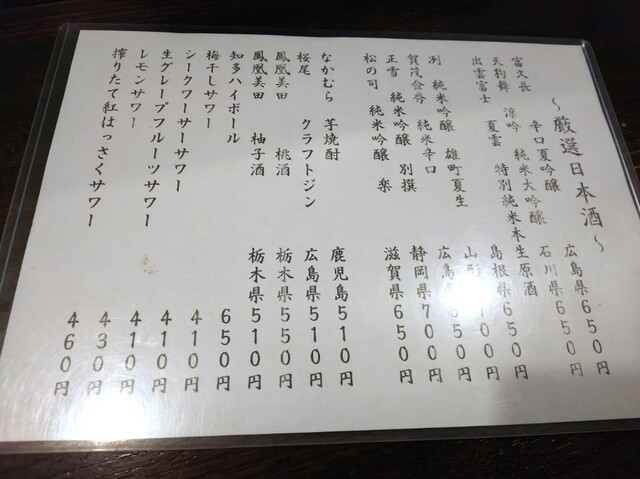 ～厳選日本酒～
富久長 辛口夏吟醸 広島県650円
天狗舞 涼吟 純米大吟醸 石川県650円
出雲富士 夏雲 特別純米本生原酒 島根県650円
冽 純米吟醸 雄町夏生 山形 00円
賀茂金秀 純米辛口 広島 50円
正雪 純米吟醸 別撰 静岡県700円
松の司 純米吟醸 楽 滋賀県650円
なかむら 芋焼酎 鹿児島510円
桜尾 クラフトジン 広島県510円
鳳凰美田 桃酒 栃木県550円
鳳凰美田 柚子酒 栃木県510円
知多ハイボール 650円
梅干しサワー 410円
シークワーサーサワー 410円
生グレープフルーツサワー 410円
レモンサワー 430円
搾りたて紅はっさくサワー 460円